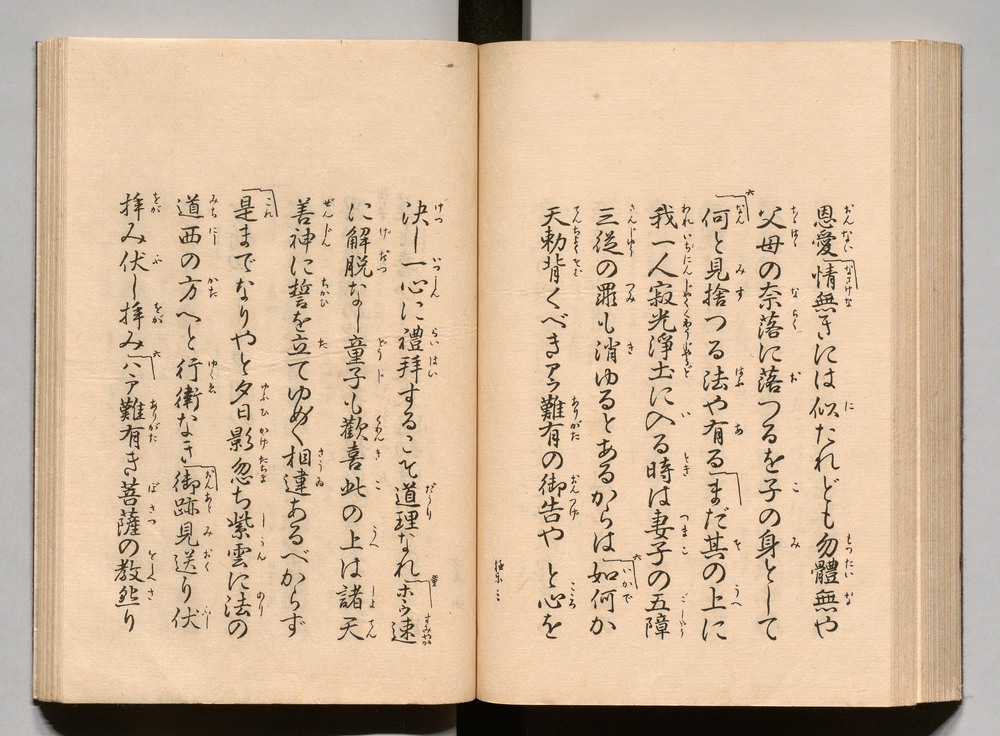 恩愛情無きには似たれども勿體無や
父母の奈落に落つるを子の身として
何と見捨つる法や有るまだ其の上に
我一人寂光淨土に入る時は妻子の五障
三従の罪も消ゆるとあるからは如何か
天勅背くべきアヽ難有の御告やと心を
決し一心に禮拜することそ道理なれホヽウ速
に解脱なし童子も歡喜此の上は諸天
善神に誓を立てゆめ〳〵相違あるべからず
是までなりやと夕日影忽ち紫雲に法の
道西の方へと行衛なき御跡見送り伏
拝み伏し拝みハヽア難有き菩薩の教へ